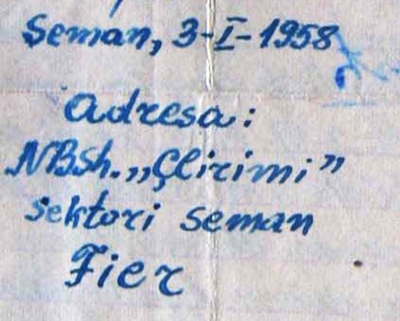 Seman, 3-I-1958
Adresa:
NBSh. „Çlirimi”
Sektori Seman
Fier